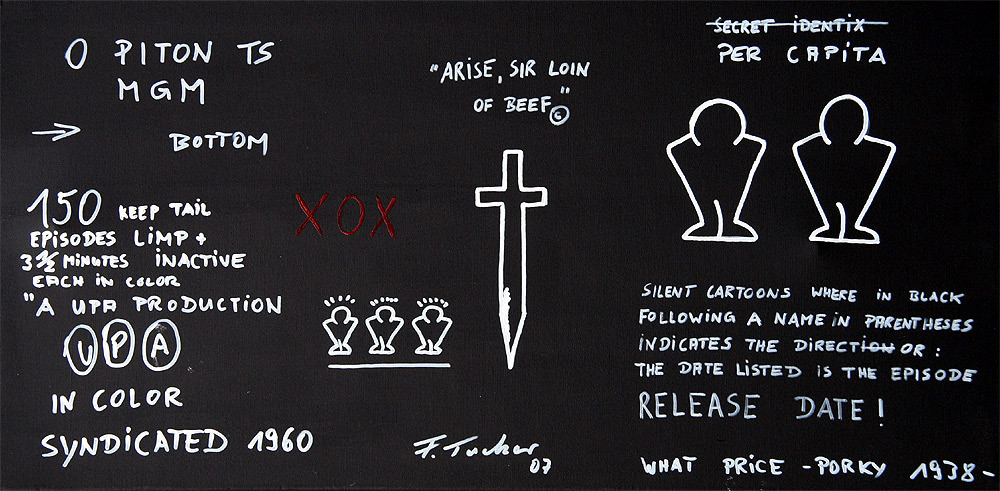 O PITON TS
MGM
BOTTOM
150 KEEP TAIL
EPISODES LIMP +
3 1/2 MINUTES INACTIVE
EACH IN COLOR
"A UPA PRODUCTION
UPA
IN COLOR
SYNDICATED 1960
XOX
"ARISE, SIR LOIN
OF BEEF"
F. Tucker
07
SECRET IDENTIX
PER CAPITA
SILENT CARTOONS WHERE IN BLACK
FOLLOWING A NAME IN PARENTHESES
INDICATES THE DIRECTION OR:
THE DATE LISTED IS THE EPISODE
RELEASE DATE!
WHAT PRICE - PORKY 1938-